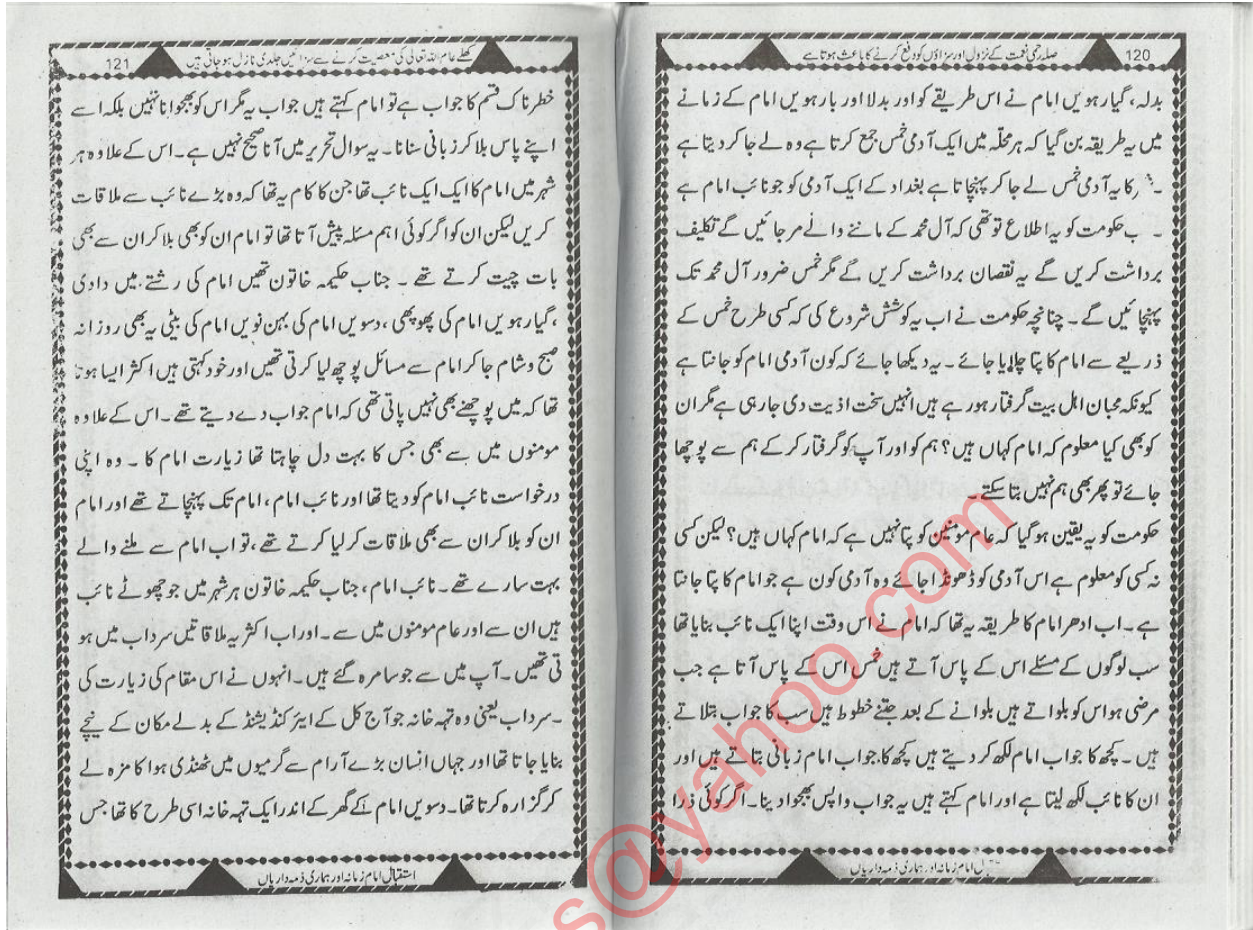 120
صلہ رحمی نعمت کے نزول اور سزاؤں کو دفع کرنے کا باعث ہوتا ہے
بدلہ، گیارہویں امام نے اس طریقے کو اور بدلا اور بارہویں امام کے زمانے
میں یہ طریقہ بن گیا کہ ہر محلّہ میں ایک آدمی خمس جمع کرتا ہے وہ لے جا کر دیتا ہے
کا یہ آدمی خمس لے جا کر پہنچاتا ہے بغداد کے ایک آدمی کو جو نائب امام ہے
۔ ب حکومت کو یہ اطلاع تو تھی کہ آل محمد کے ماننے والے مر جائیں گے تکلیف
برداشت کریں گے یہ نقصان برداشت کریں گے مگر خمس ضرور آل محمد تک
پہنچائیں گے ۔ چنانچہ حکومت نے اب یہ کوشش شروع کی کہ کسی طرح خمس کے
ذریعے سے امام کا پتا چلایا جائے ۔ یہ دیکھا جائے کہ کون آدمی امام کو جانتا ہے
کیونکہ محبان اہل بیت گرفتار ہو رہے ہیں انہیں سخت اذیت دی جا رہی ہے مگر ان
کو بھی کیا معلوم کہ امام کہاں ہیں؟ ہم کو اور آپ کو گرفتار کر کے ہم سے پوچھا
جائے تو پھر بھی ہم نہیں بتا سکتے
حکومت کو یہ یقین ہو گیا کہ عام مومنین کو پتا نہیں ہے کہ امام کہاں ہیں؟ لیکن کسی
نہ کسی کو معلوم ہے اس آدمی کو ڈھونڈا جائے وہ آدمی کون ہے جو امام کا پتا جانتا
ہے ۔ اب ادھر امام کا طریقہ یہ تھا کہ امام نے اس وقت اپنا ایک نائب بنایا تھا
سب لوگوں کے مسئلے اس کے پاس آتے ہیں خمس اس کے پاس آتا ہے جب
مرضی ہو اس کو بلواتے ہیں بلوانے کے بعد جتنے خطوط ہیں سب کا جواب بتلاتے
ہیں ۔ کچھ کا جواب امام لکھ کر دیتے ہیں کچھ کا جواب امام زبانی بتاتے ہیں اور
ان کا نائب لکھ لیتا ہے اور امام کہتے ہیں یہ جواب واپس بھجوا دینا ۔ اگر کوئی ذرا
امام زمانہ اور ہماری ذمہ داریاں
کھلے عام اللہ تعالی کی معصیت کرنے سے سزائیں جلدی نازل ہو جاتی ہیں
121
خطرناک قسم کا جواب ہے تو امام کہتے ہیں جواب یہ مگر اس کو بھجوانا نہیں بلکہ اسے
اپنے پاس بلا کر زبانی سنانا ۔ یہ سوال تحریر میں آنا صحیح نہیں ہے ۔ اس کے علاوہ ہر
شہر میں امام کا ایک ایک نائب تھا جن کا کام یہ تھا کہ وہ بڑے نائب سے ملاقات
کریں لیکن ان کو اگر کوئی اہم مسئلہ پیش آتا تھا تو امام ان کو بھی بلا کر ان سے بھی
بات چیت کرتے تھے ۔ جناب حکیمہ خاتون تھیں امام کی رشتے میں دادی
، گیارہویں امام کی پھوپھی ، دسویں امام کی بہن نویں امام کی بیٹی یہ بھی روزانہ
صبح و شام جا کر امام سے مسائل پوچھ لیا کرتی تھیں اور خود کہتی ہیں اکثر ایسا ہوتا
تھا کہ میں پوچھنے بھی نہیں پاتی تھی کہ امام جواب دے دیتے تھے ۔ اس کے علاوہ
مومنوں میں سے بھی جس کا بہت دل چاہتا تھا زیارت امام کا ۔ وہ اپنی
درخواست نائب امام کو دیتا تھا اور نائب امام ، امام تک پہنچاتے تھے اور امام
ان کو بلا کر ان سے بھی ملاقات کر لیا کرتے تھے ، تو اب امام سے ملنے والے
بہت سارے تھے ۔ نائب امام ، جناب حکیمہ خاتون ہر شہر میں جو چھوٹے نائب
ہیں ان سے اور عام مومنوں میں سے ۔ اور اب اکثر یہ ملاقاتیں سرداب میں ہو
تی تھیں ۔ آپ میں سے جو سامرہ گئے ہیں ۔ انہوں نے اس مقام کی زیارت کی
۔ سرداب یعنی وہ تہہ خانہ جو آج کل کے ایئر کنڈیشنڈ کے بدلے مکان کے نیچے
بنایا جاتا تھا اور جہاں انسان بڑے آرام سے گرمیوں میں ٹھنڈی ہوا کا مزہ لے
کر گزارہ کرتا تھا ۔ دسویں امام کے گھر کے اندر ایک تہہ خانہ اسی طرح کا تھا جس
استقبال امام زمانہ اور ہماری ذمہ داریاں
s@yahoo.com